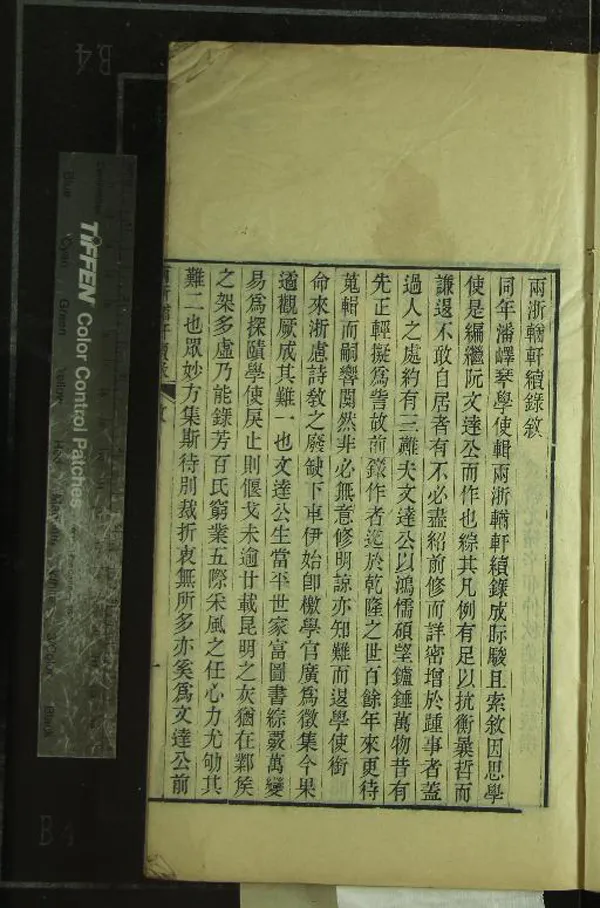 兩浙輶軒續錄敘
同年潘嶧琴學使輯兩浙輶軒續錄成眎駿且索敘因思學
使是編繼阮文達公而作也綜其凡例有足以抗衡曩哲而
謙退不敢自居者有不必盡紹前修而詳密增於踵事者蓋
過人之處約有三難夫文達公以鴻儒碩望鑪錘萬物昔有
先正輕擬爲訾故前錄作者迄於乾隆之世百餘年來更待
蒐輯而嗣響闃然非必無意修明諒亦知難而退學使銜
命來浙慮詩教之廢缺下車伊始卽檄學官廣爲徵集今果
遹觀厥成其難一也文達公生當平世家富圖書綜覈萬變
易爲探賾學使戾止則偃戈未逾廿載昆明之灰猶在鄴矦
之架多虛乃能錄芳百氏窮業五際采風之任心力尤劬其
難二也眾妙方集斯待別裁折衷無所多亦奚爲文達公前
兩浙輶軒續錄 敘
一
TIFFEN Color Control Patches
Blue
Cyan
Green
Yellow
Red
Magenta
White
3/Color
Black
B4
B4